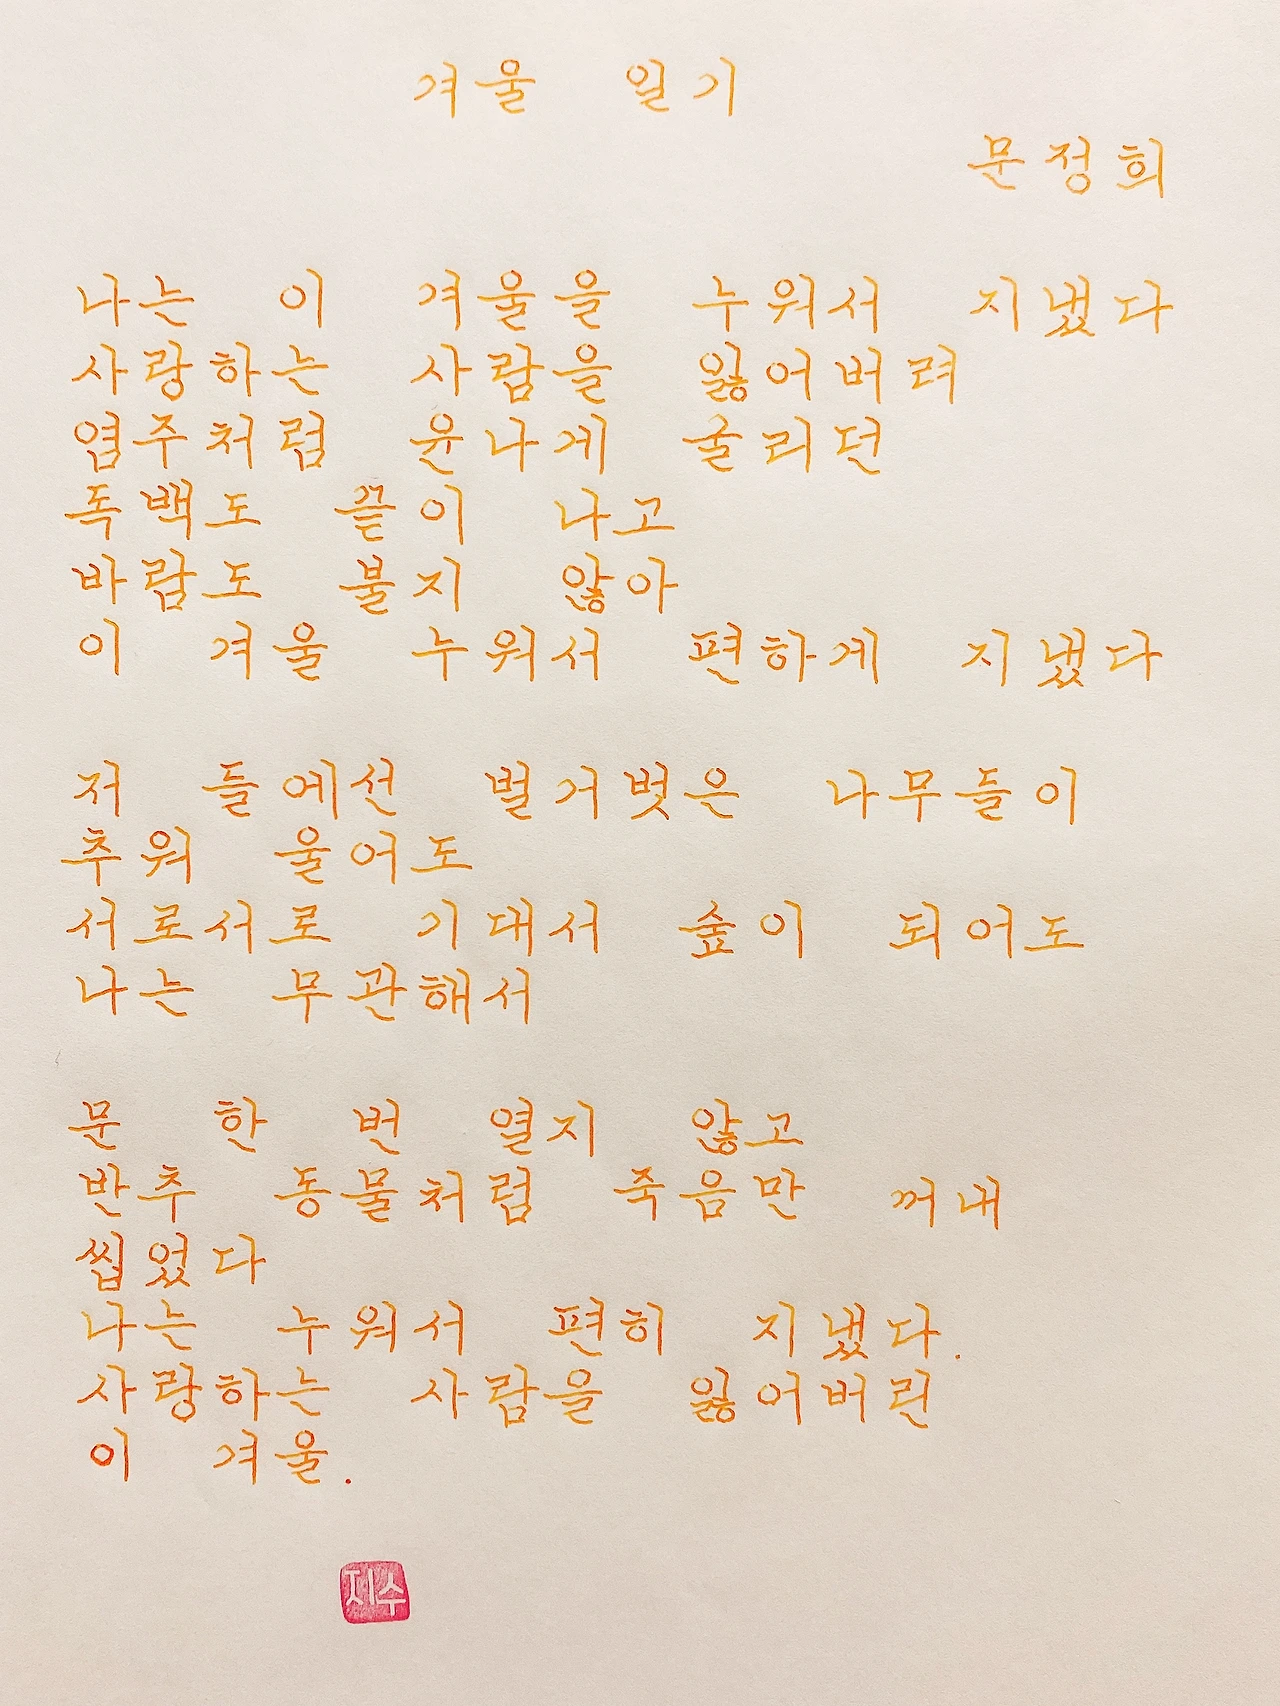 겨울 일기
문정희
나는 이 겨울을 누워서 지냈다
사랑하는 사람을 잃어버려
염주처럼 윤나게 굴리던
독백도 끝이 나고
바람도 불지 않아
이 겨울 누워서 편하게 지냈다
저 들에선 벌거벗은 나무들이
추워 울어도
서로서로 기대서 숲이 되어도
나는 무관해서
문 한 번 열지 않고
반추 동물처럼 죽음만 꺼내
씹었다
나는 누워서 편히 지냈다.
사랑하는 사람을 잃어버린
이 겨울.
지수